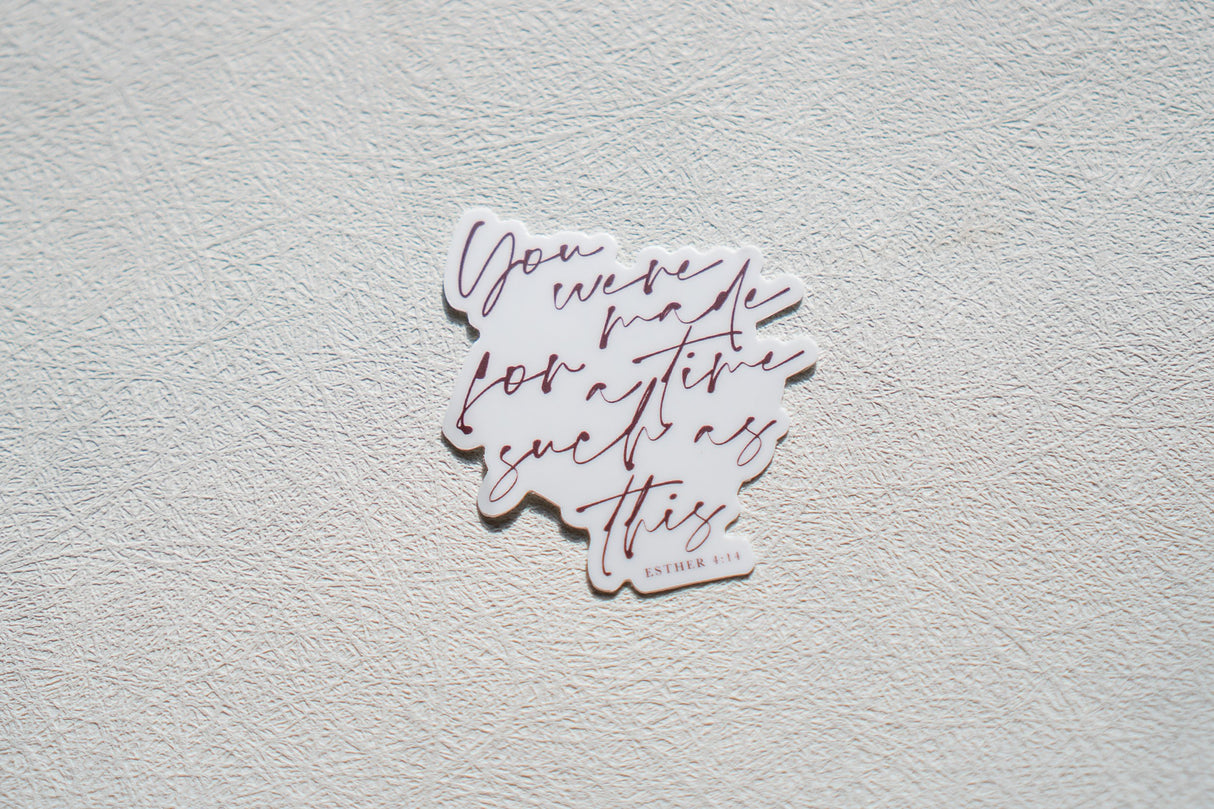 You
were
made
for a time
such as
this
ESTHER 4:14